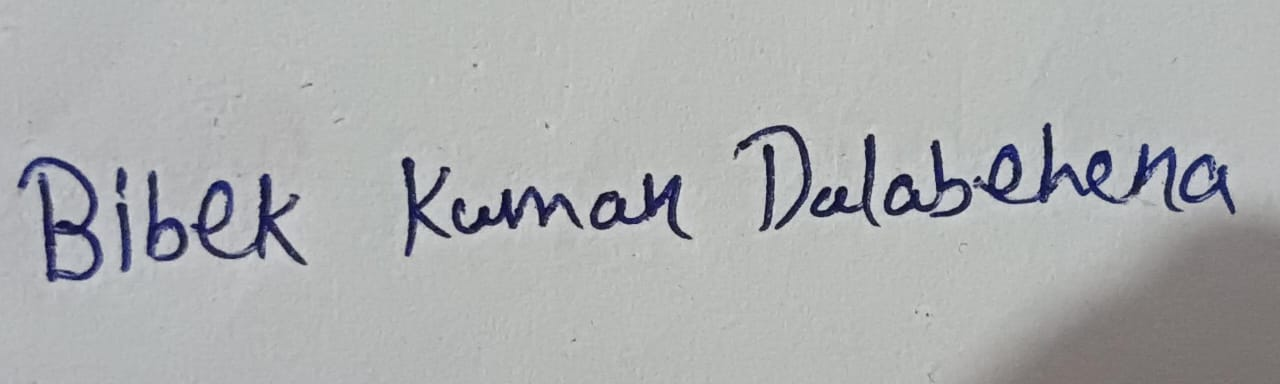 Bibek Kumar Dalabehera